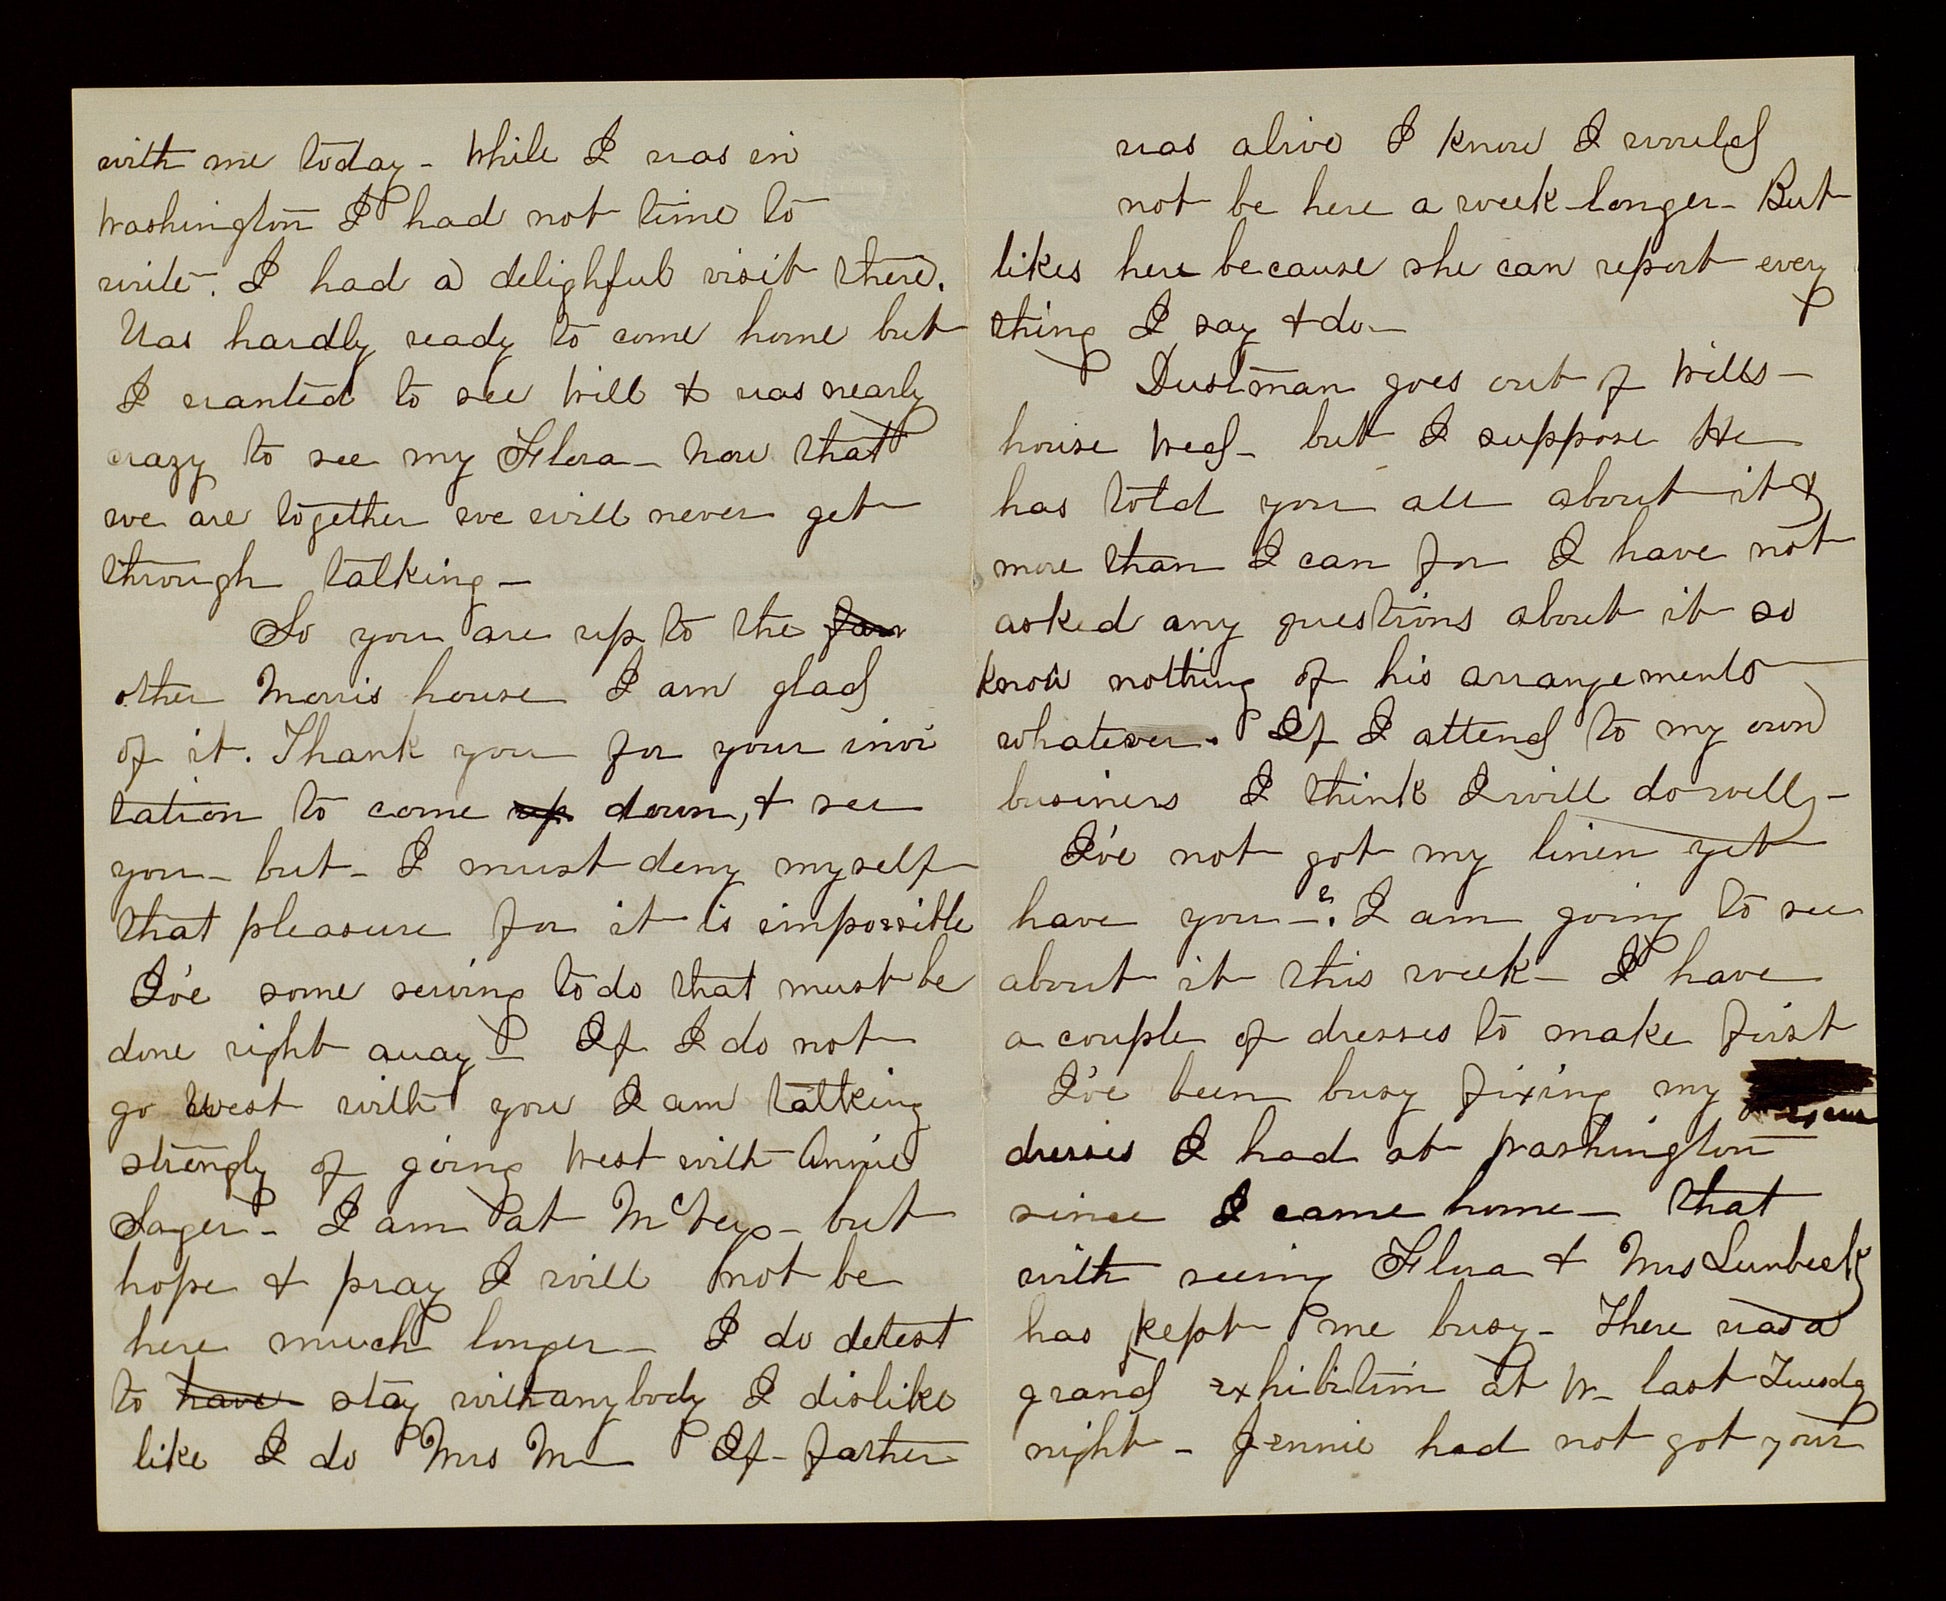 with me today - While I was in
Washington I had not time to
write. I had a delighful visit there.
Was hardly ready to come home but
I wanted to see Will & was nearly
crazy to see my Flora - now that
we are together we will never get
through talking -
So you are up to the
other Morris house I am glad
of it. Thank you for your invi
tation to come up down, & see
you - but - I must deny myself
that pleasure for it is impossible
I've some sewing to do that must be
done right away - If I do not
go West with you I am talking
strongly of going West with Annie
Sager - I am at - but
hope & pray I will not be
here much longer - I do detest
to have stay with anybody I dislike
like I do Mrs M - If father
was alive I know I would
not be here a week longer - But
likes here because she can report every
thing I say & do -
Dustman goes out of Wills -
house Wed - but I suppose He
has told you all about it &
more than I can for I have not
asked any questions about it so
know nothing of his arrangements
whatever. If I attend to my own
business I think I will do well -
I've not got my linen yet
have you - ? I am going to see
about it this week - I have
a couple of dresses to make first
I've been busy fixing my
dresses I had at Washington
since I came home - that
with seeing Flora & Mrs Lunbeck
has kept me busy - There was a
grand exhibition at W - last Tuesdy
night - Jennie had not got your